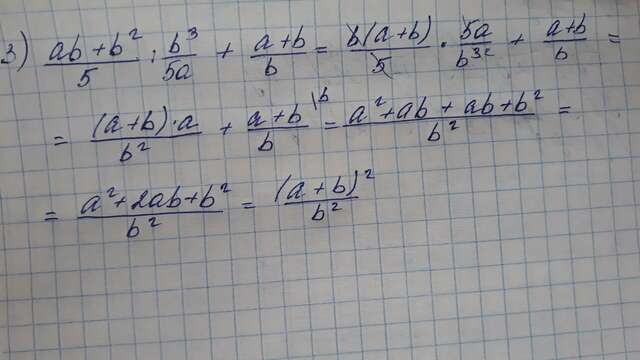 3) (ab+b²)/5 : b³/5a + (a+b)/b = b(a+b)/5 · 5a/b³² + (a+b)/b =
= (a+b)·a/b² + (a+b)/b \b = (a²+ab+ab+b²)/b² =
= (a²+2ab+b²)/b² = (a+b)²/b²